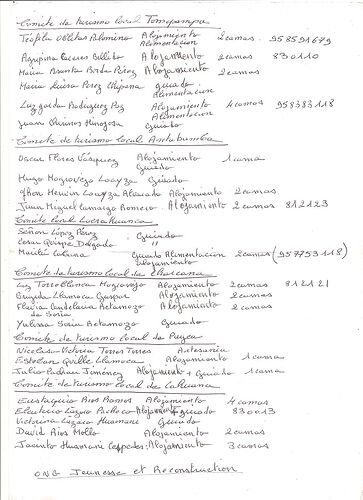 Comite de turismo local Tomepampa
Teofila Ubletas Palomino Alojamiento 2 camas. 958591679
Alimentacion
Agripina Caceres Billito Alojamiento 2 camas 830110
Maria Asunta Borda Perez Alojamiento 2 camas
Maria Luisa Perez Chipana guiado
Alimentacion
Luzgarda Rodriguez Paz Alojamiento 4 camas 958383118
Alimentacion
Juan Quirios Hinojosa Guiado
Comite de turismo local Andabamba
Oscar Flores Vasquez Alojamiento 1 cama
Guiado
Hugo Mogrovejo Loayza Guiado
Jhon Herwin Loayza Alvarado Alojamiento 2 camas
Juan Miguel Camargo Romero Alojamiento 2 camas 812123
Comite Local Lucha Huanca
Señor Lopez Perez Guiado
Cesar Quispe Delgado "
Maritza Cahuana Guiado Alimentacion 2 camas (957753118)
Alojamiento
Comite de turismo local de Charcana
Luz Torreblanca Mogrovejo Alojamiento 2 camas 812121
Brigida Llamoca Gaspar Alojamiento 2 camas
Flavia Candelaria Actamozo Alojamiento 2 camas
de Soria
Yulissa Soria Actamozo Guiado
Comite de turismo local de Puyca
Nicolasa Victoria Torres Torres Artesania
Esteban Quille Llamoca Alojamiento 1 cama
Julio Padian Jiménez Alojamiento + Guiado 1 cama
Comite de turismo local de Cahuana
Eustaquio Rios Ramos Alojamiento 4 camas
Eleuterio Lazaro Pacheco Alojamiento + guiado 830013
Victoriano Lazaro Huamani Guiado
David Rios Molto Alojamiento 2 camas
Jacinto Huamani Cespedes: Alojamiento 3 camas
ONG Jeunesse et Reconstruction